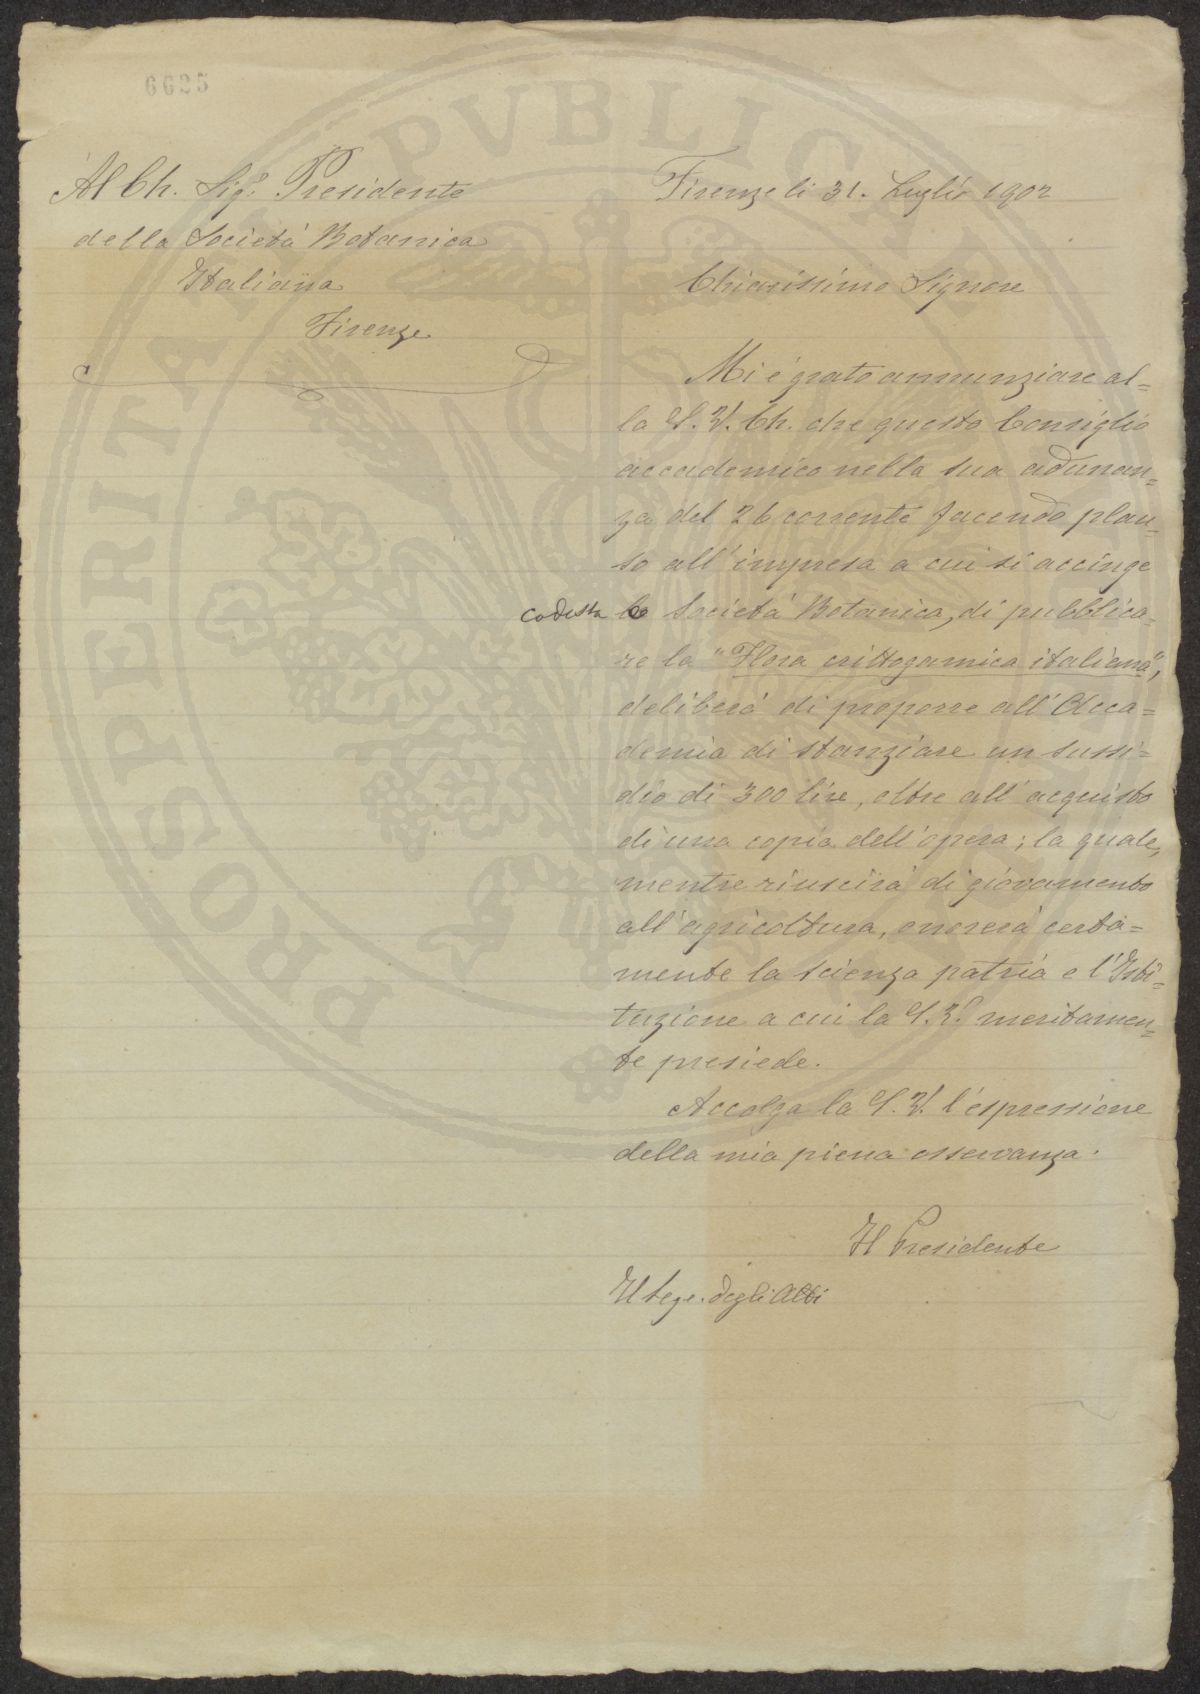 6625
Al Ch. Sig.r Presidente
della Società Botanica
Italiana
Firenze
Firenze li 31. Luglio 1902
Chiarissimo Signore
Mi è grato annunziare al=
la S. V. Ch. che questo Consiglio
accademico nella sua adunan=
za del 26 corrente facendo plau=
so all'impresa a cui si accinge
codesta Società Botanica, di pubblica=
re la "Flora crittogamica italiana",
deliberà di proporre all'Acca=
demia di stanziare un sussi=
dio di 300 lire, oltre all'acquisto
di una copia dell'opera; la quale,
mentre riuscirà di giovamento
all'agricoltura, onorerà certa=
mente la scienza patria e l'Isti=
tuzione a cui la S.V. meritamen=
te presiede.
Accolga la S. V. l'espressione
della mia piena osservanza.
Il Presidente
Il Segr. degli Atti
PROSPERITATI PVBLICAE